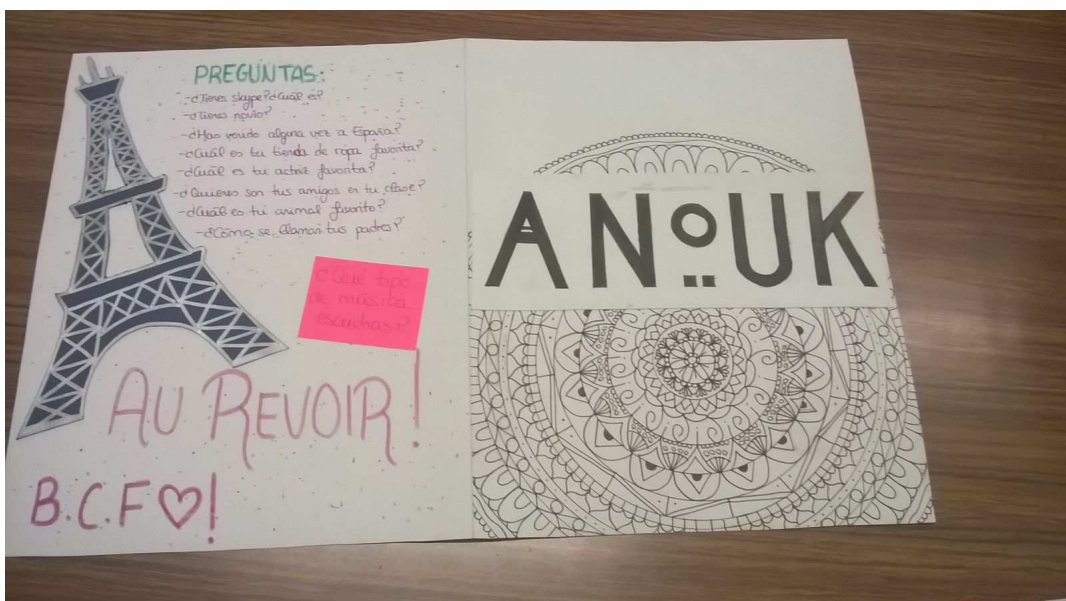 PREGUNTAS:
-¿Tienes skype? ¿Cuál es?
-¿Tienes novio?
-¿Has venido alguna vez a España?
-¿Cuál es tu tienda de ropa favorita?
-¿Cuál es tu actriz favorita?
-¿Quienes son tus amigos en tu clase?
-¿Cuál es tu animal favorito?
-¿Cómo se llaman tus padres?
¿Qué tipo
de música
escuchas?
AU REVOIR!
B.C.F ♡!
ANOUK